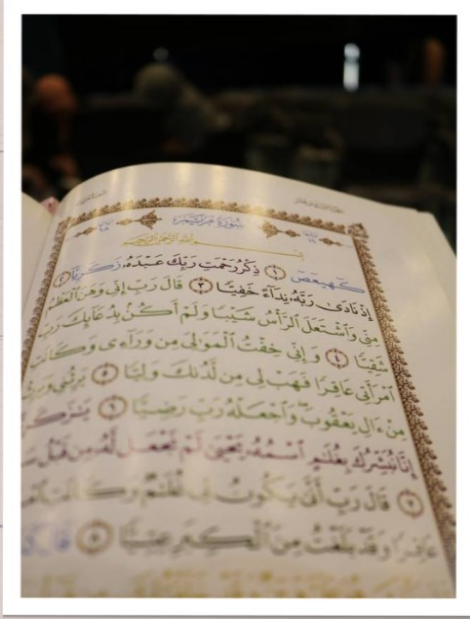 سُورَةُ مَرْيَمَ
بِسْمِ اللَّهِ الرَّحْمَٰنِ الرَّحِيمِ
كٓهيعٓصٓ ١ ذِكْرُ رَحْمَتِ رَبِّكَ عَبْدَهُۥ زَكَرِيَّآ ٢
إِذْ نَادَىٰ رَبَّهُۥ نِدَآءً خَفِيًّا ٣ قَالَ رَبِّ إِنِّى وَهَنَ ٱلْعَظْمُ
مِنِّى وَٱشْتَعَلَ ٱلرَّأْسُ شَيْبًا وَلَمْ أَكُنۢ بِدُعَآئِكَ رَبِّ
شَقِيًّا ٤ وَإِنِّى خِفْتُ ٱلْمَوَٰلِىَ مِن وَرَآءِى وَكَانَتِ
ٱمْرَأَتِى عَاقِرًا فَهَبْ لِى مِن لَّدُنكَ وَلِيًّا ٥ يَرِثُنِى وَيَرِثُ
مِنْ ءَالِ يَعْقُوبَ ۖ وَٱجْعَلْهُ رَبِّ رَضِيًّا ٦ يَٰزَكَرِيَّآ
إِنَّا نُبَشِّرُكَ بِغُلَٰمٍ ٱسْمُهُۥ يَحْيَىٰ لَمْ نَجْعَل لَّهُۥ مِن قَبْلُ
٧ قَالَ رَبِّ أَنَّىٰ يَكُونُ لِى غُلَٰمٌ وَكَانَتِ
عَاقِرًا وَقَدْ بَلَغْتُ مِنَ ٱلْكِبَرِ عِتِيًّا ٨ قَالَ